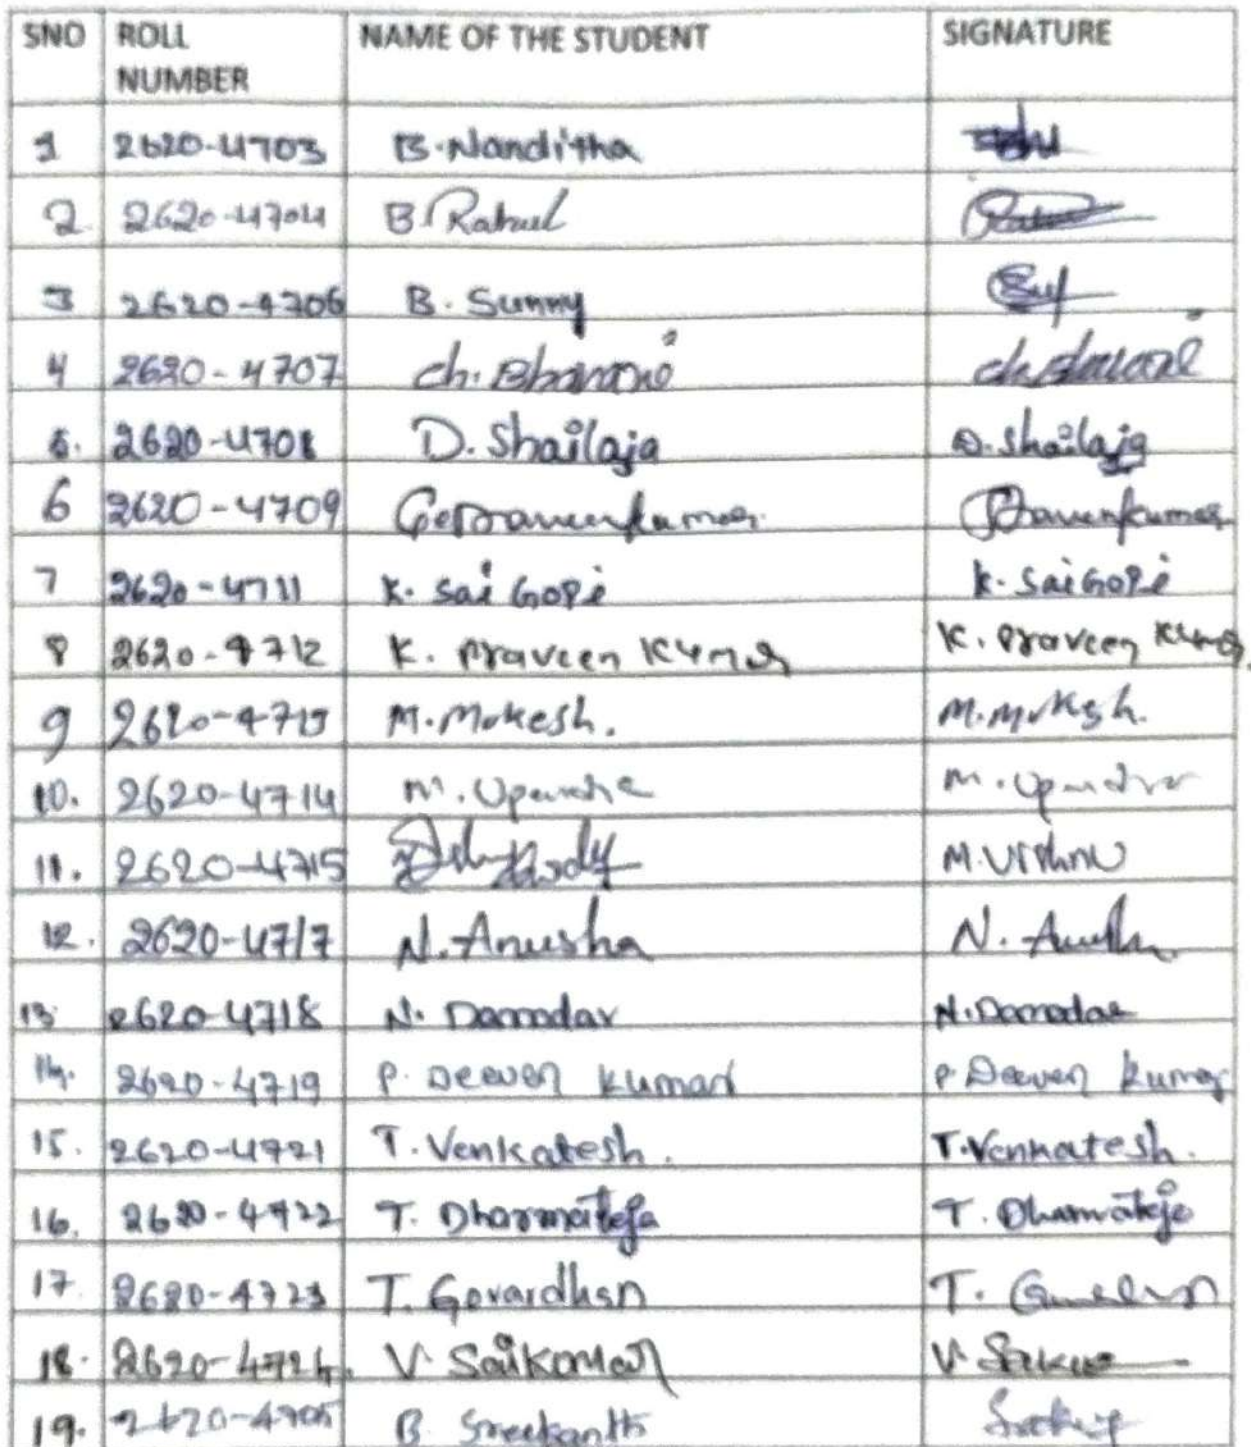 SNO ROLL NUMBER NAME OF THE STUDENT SIGNATURE
1 2620-4703 B. Nanditha
2 2620-4704 B. Rahul
3 2620-4706 B. Sunny
4 2620-4707 ch. Bhavani ch. Bhavani
5. 2620-4708 D. Shailaja D. Shailaja
6 2620-4709 G. Praveenkumar Pravenkumar
7 2620-4711 K. Sai Gopi K. Sai Gopi
8 2620-4712 K. Praveen Kumar K. Praveen Kumar
9 2620-4713 M. Mokesh. M. Moksh.
10. 2620-4714 M. Upendra M. Upendra
11. 2620-4715 M. Vishnu
12. 2620-4717 N. Anusha N. Anusha
13. 2620-4718 N. Damodar N. Damodar
14. 2620-4719 P. Deeven Kumar P. Deeven Kumar
15. 2620-4721 T. Venkatesh. T. Venkatesh.
16. 2620-4722 T. Dharmateja T. Dharmateja
17 2620-4723 T. Govardhan T.
18. 2620-4724. V. Saikumar V.
19. 2620-4705 B Sreekanth